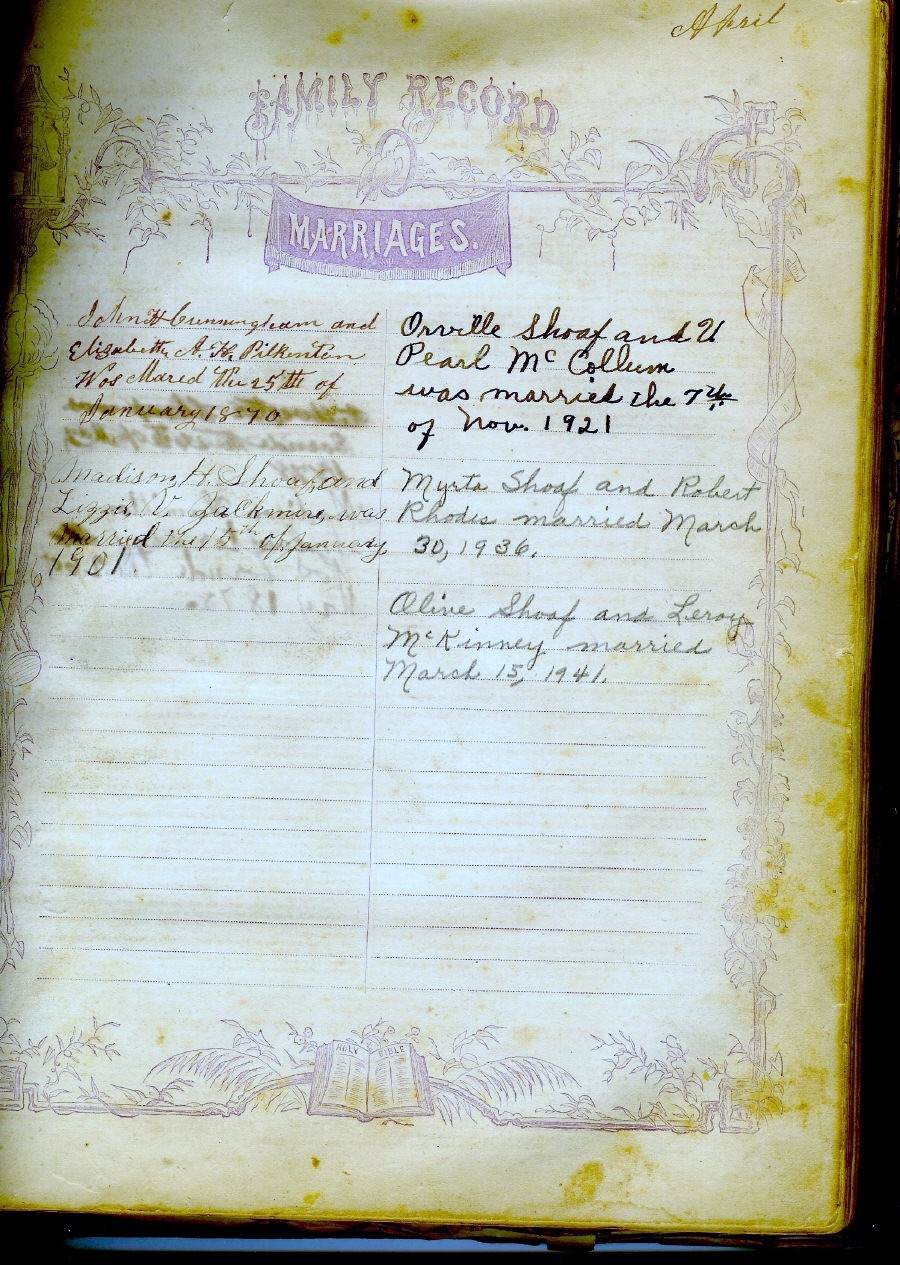 April
FAMILY RECORD
MARRIAGES.
John H Cunningham and
Elizabeth A. H. Pilkenton
Was Mared the 25th of
January 1870
Madison H. Shoaf and
Lizzie V. Zackmire, was
Married the 15th of January
1901
Orville Shoaf and U
Pearl McCollum
was married the 7th
of Nov. 1921
Myrta Shoaf and Robert
Rhodes married March
30, 1936.
Olive Shoaf and Leroy
McKinney married
March 15, 1941.
HOLY BIBLE